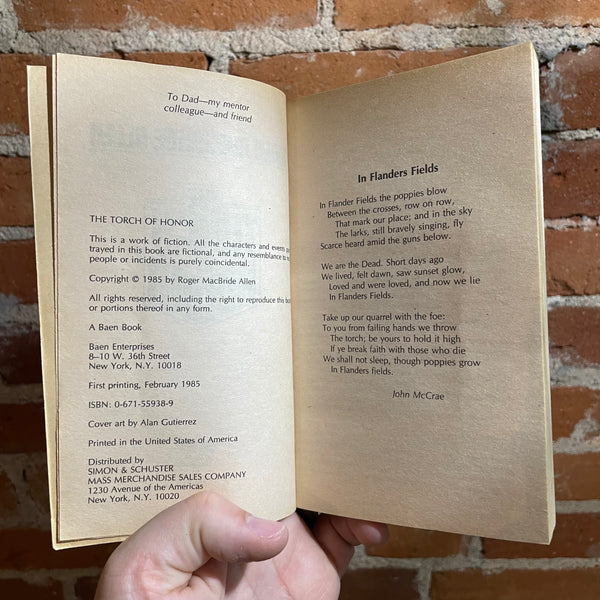 To Dad—my mentor
colleague—and friend
THE TORCH OF HONOR
This is a work of fiction. All the characters and events
trayed in this book are fictional, and any resemblance to
people or incidents is purely coincidental.
Copyright © 1985 by Roger MacBride Allen
All rights reserved, including the right to reproduce this
or portions thereof in any form.
A Baen Book
Baen Enterprises
8–10 W. 36th Street
New York, N.Y. 10018
First printing, February 1985
ISBN: 0-671-55938-9
Cover art by Alan Gutierrez
Printed in the United States of America
Distributed by
SIMON & SCHUSTER
MASS MERCHANDISE SALES COMPANY
1230 Avenue of the Americas
New York, N.Y. 10020
In Flanders Fields
In Flander Fields the poppies blow
Between the crosses, row on row,
That mark our place; and in the sky
The larks, still bravely singing, fly
Scarce heard amid the guns below.
We are the Dead. Short days ago
We lived, felt dawn, saw sunset glow,
Loved and were loved, and now we lie
In Flanders Fields.
Take up our quarrel with the foe:
To you from failing hands we throw
The torch; be yours to hold it high
If ye break faith with those who die
We shall not sleep, though poppies grow
In Flanders fields.
John McCrae